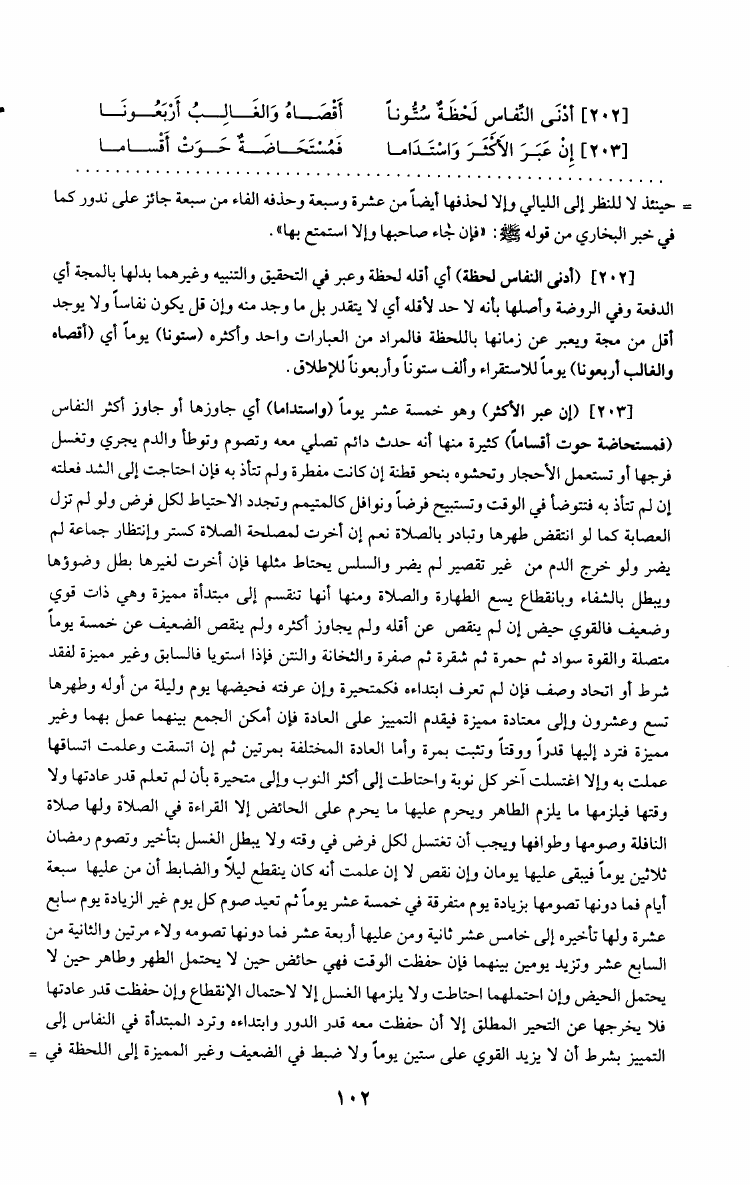 [٢٠٢] أَدْنَى النِّفَاسِ لَحْظَةٌ سُتُّوناً أَقْصَـــاهُ وَالغَـــالِـــبُ أَرْبَعُـــونَـــا
[٢٠٣] إِنْ عَبَرَ الأَكْثَرَ وَاسْتَدَاما فَمُسْتَحَـاضَـــةٌ حَـــوَتْ أَقْســـامـــا
= حينئذ لا للنظر إلى الليالي وإلا لحذفها أيضاً من عشرة وسبعة وحذفه الفاء من سبعة جائز على ندور كما
في خبر البخاري من قوله ﷺ: «فإن جاء صاحبها وإلا استمتع بها».
[٢٠٢] (أدنى النفاس لحظة) أي أقله لحظة وعبر في التحقيق والتنبيه وغيرهما بدلها بالمجة أي
الدفعة وفي الروضة وأصلها بأنه لا حد لأقله أي لا يتقدر بل ما وجد منه وإن قل يكون نفاساً ولا يوجد
أقل من مجة ويعبر عن زمانها باللحظة فالمراد من العبارات واحد وأكثره (ستونا) يوماً أي (أقصاه
والغالب أربعونا) يوماً للاستقراء وألف ستوناً وأربعوناً للإطلاق.
[٢٠٣] (إن عبر الأكثر) وهو خمسة عشر يوماً (واستداما) أي جاوزها أو جاوز أكثر النفاس
(فمستحاضة حوت أقساماً) كثيرة منها أنه حدث دائم تصلي معه وتصوم وتوطأ والدم يجري وتغسل
فرجها أو تستعمل الأحجار وتحشوه بنحو قطنة إن كانت مفطرة ولم تتأذ به فإن احتاجت إلى الشد فعلته
إن لم تتأذ به فتتوضأ في الوقت وتستبيح فرضاً ونوافل كالمتيمم وتجدد الاحتياط لكل فرض ولو لم تزل
العصابة كما لو انتقض طهرها وتبادر بالصلاة نعم إن أخرت لمصلحة الصلاة كستر وإنتظار جماعة لم
يضر ولو خرج الدم من غير تقصير لم يضر والسلس يحتاط مثلها فإن أخرت لغيرها بطل وضوؤها
ويبطل بالشفاء وبانقطاع يسع الطهارة والصلاة ومنها أنها تنقسم إلى مبتدأة مميزة وهي ذات قوي
وضعيف فالقوي حيض إن لم ينقص عن أقله ولم يجاوز أكثره ولم ينقص الضعيف عن خمسة يوماً
متصلة والقوة سواد ثم حمرة ثم شقرة ثم صفرة والثخانة والنتن فإذا استويا فالسابق وغير مميزة لفقد
شرط أو اتحاد وصف فإن لم تعرف ابتداءه فكمتحيرة وإن عرفته فحيضها يوم وليلة من أوله وطهرها
تسع وعشرون وإلى معتادة مميزة فيقدم التمييز على العادة فإن أمكن الجمع بينهما عمل بهما وغير
مميزة فترد إليها قدراً ووقتاً وتثبت بمرة وأما العادة المختلفة بمرتين ثم إن اتسقت وعلمت اتساقها
عملت به وإلا اغتسلت آخر كل نوبة واحتاطت إلى أكثر النوب وإلى متحيرة بأن لم تعلم قدر عادتها ولا
وقتها فيلزمها ما يلزم الطاهر ويحرم عليها ما يحرم على الحائض إلا القراءة في الصلاة ولها صلاة
النافلة وصومها وطوافها ويجب أن تغتسل لكل فرض في وقته ولا يبطل الغسل بتأخير وتصوم رمضان
ثلاثين يوماً فيبقى عليها يومان وإن نقص لا إن علمت أنه كان ينقطع ليلاً والضابط أن من عليها سبعة
أيام فما دونها تصومها بزيادة يوم متفرقة في خمسة عشر يوماً ثم تعيد صوم كل يوم غير الزيادة يوم سابع
عشرة ولها تأخيره إلى خامس عشر ثانية ومن عليها أربعة عشر فما دونها تصومه ولاء مرتين والثانية من
السابع عشر وتزيد يومين بينهما فإن حفظت الوقت فهي حائض حين لا يحتمل الطهر وطاهر حين لا
يحتمل الحيض وإن احتملهما احتاطت ولا يلزمها الغسل إلا لاحتمال الإنقطاع وإن حفظت قدر عادتها
فلا يخرجها عن التحير المطلق إلا أن حفظت معه قدر الدور وابتداءه وترد المبتدأة في النفاس إلى
التمييز بشرط أن لا يزيد القوي على ستين يوماً ولا ضبط في الضعيف وغير المميزة إلى اللحظة في =
١٠٢